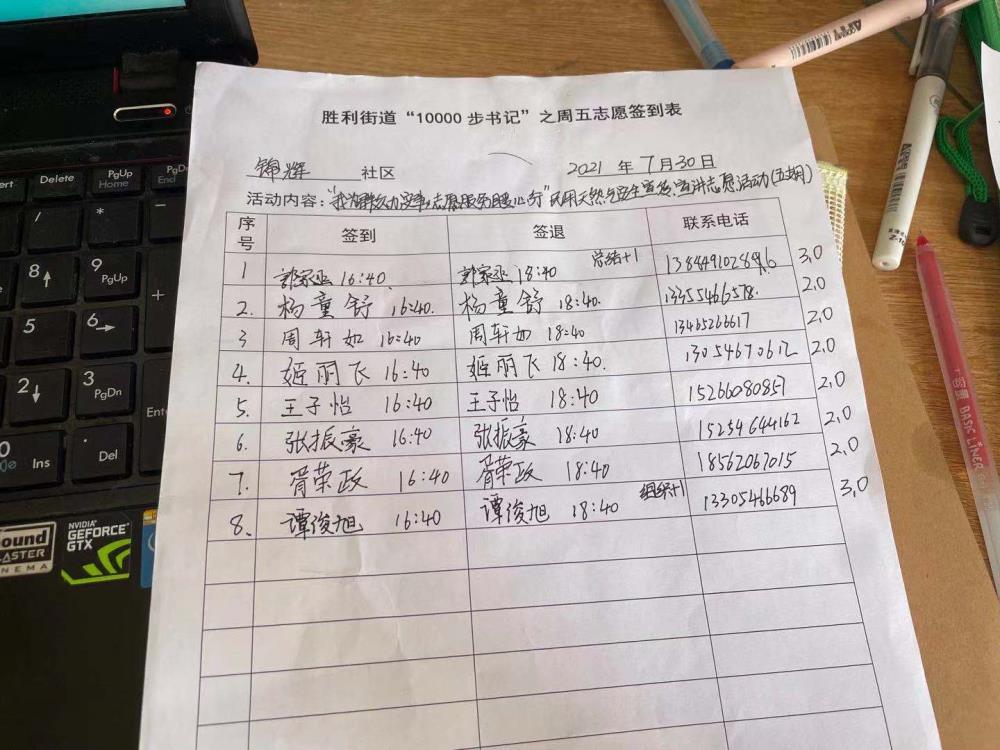 胜利街道“10000 步书记”之周五志愿签到表
锦辉 社区 2021 年 7月30日
活动内容：“我为群众办实事，志愿服务暖心行”民用天然气安全宣传宣讲志愿活动(五期)
序号 签到 签退 联系电话
1 郭家亟 16:40 郭家亟 18:40 总结+1 3.0
2. 杨童舒 16:40. 杨童舒 18:40. 13355466578. 2.0
3 周轩如 16:40 周轩如 18:40 13465266617 2.0
4. 姬丽飞 16:40 姬丽飞 18:40. 13054670612 2.0
5. 王子怡 16:40 王子怡 18:40 15266080857 2.0
6. 张振豪 16:40 张振豪 18:40 15254644162 2.0
7. 胥荣政 16:40 胥荣政 18:40 18562067015 2.0
8. 谭俊旭 16:40 谭俊旭 18:40 组织+1 13305466689 3.0
Delete
PgUp
Home
PgDn
/
*
8↑
9
PgUp
+
5
6→
2↓
3
PgDn
Ent
Ins
Del
ound
LASTER
NEMA
NVIDIA
GEFORCE
GTX
BASIC LINER